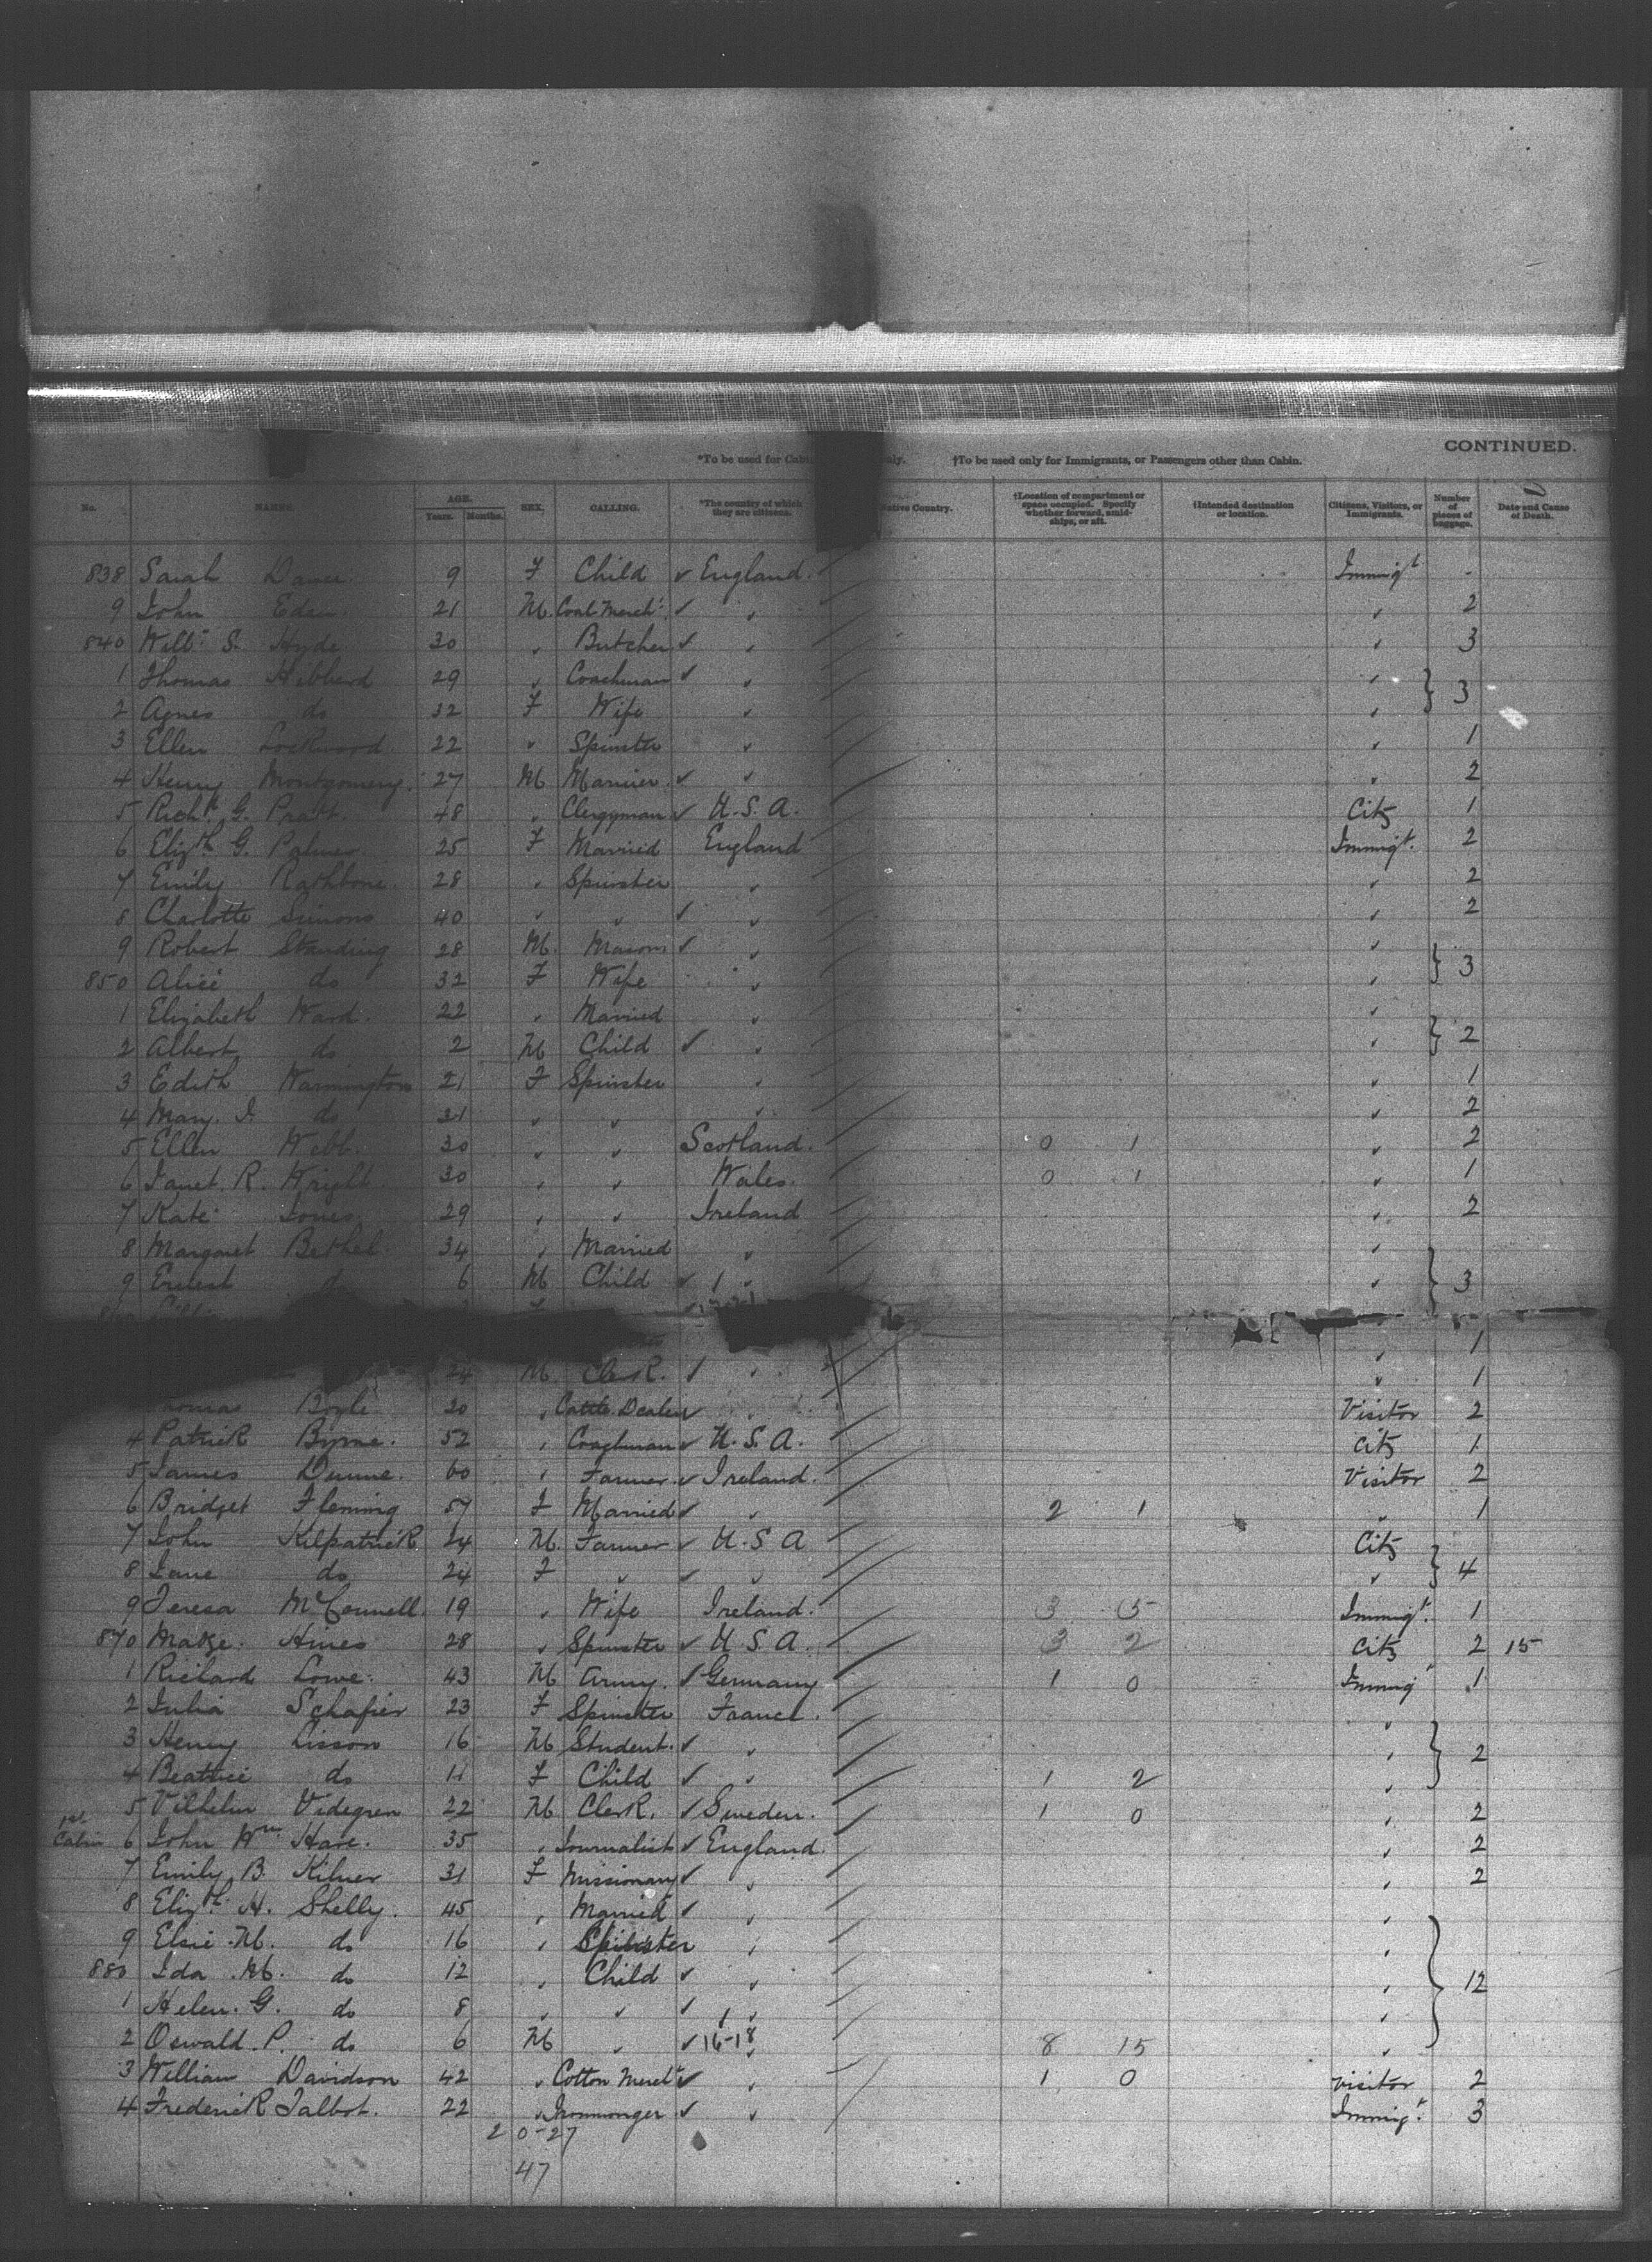 CONTINUED.
*To be used for Cabin only. †To be used only for Immigrants, or Passengers other than Cabin.
No. NAMES. AGE. Years. Months. SEX. CALLING. *The country of which they are citizens. Native Country. †Location of compartment or space occupied. Specify whether forward, amidships, or aft. †Intended destination or location. Citizens, Visitors, or Immigrants. Number of pieces of baggage. Date and Cause of Death.
838 Sarah 9 F Child ✓ England. Immigt -
9 John Eden 21 M. Coal Mercht ✓ " " 2
840 Willm S. Hyde 30 " Butcher ✓ " " 3
1 Thomas Hibberd 29 " Coachman ✓ " " } 3
2 Agnes do 32 F Wife " "
3 Ellen Lockwood. 22 " Spinster " " 1
4 Henry Montgomery. 27 M Marrier. ✓ " " 2
5 Richd G. Pratt. 48 " Clergyman ✓ U.S.A. Citz 1
6 Elizth G. Palmer 25 F Married England Immigt. 2
7 Emily Rathbone. 28 " Spinster " " 2
8 Charlotte Simons 40 " " ✓ " " 2
9 Robert Standing 28 M. Mason ✓ " " } 3
850 Alice do 32 F Wife " "
1 Elizabeth Ward. 22 " Married " " } 2
2 Albert do 2 M Child ✓ " "
3 Edith Warmington 21 F Spinster " " 1
4 Mary. I. do 31 " " " " 2
5 Ellen Webb. 30 " " Scotland. 0 1 " 2
6 Janet. R. Wright 30 " " Wales. 0 1 " 1
7 Kate Jones. 29 " " Ireland " 2
8 Margaret Bethel. 34 " Married " " } 3
9 Ernest d 6 M Child ✓ 1 " "
" 1
24 M Clerk. ✓ " " 1
Boyle 30 " Cattle Dealer ✓ " Visitor 2
4 Patrick Byrne. 52 " Coachman ✓ U.S.A. Citz 1
5 James Dunne. 60 " Farmer ✓ Ireland. Visitor 2
6 Bridget Fleming 57 F Married ✓ " 2 1 " 1
7 John Kilpatrick 24 M. Farmer ✓ U.S A Citz } 4
8 Jane do 24 F " ✓ " "
9 Teresa McConnell. 19 " Wife Ireland. 3 15 Immigt. 1
870 Madge. Hines 28 " Spinster ✓ U.S.A. 3 2 Citz 2 15
1 Richard Lowe. 43 M Army. ✓ Germany 1 0 Immigt 1
2 Julia Schafier 23 F Spinster France. " } 2
3 Henry Lisson 16 M Student. ✓ " "
4 Beatrice do 11 F Child ✓ " 1 2 "
5 Vilhelm Videgren 22 M Clerk. ✓ Sweden. 1 0 " 2
1st Cabin 6 John Wm Hare. 35 " Journalist ✓ England. " 2
7 Emily B. Kilner 31 F Missionary ✓ " " 2
8 Elizth H. Shelly. 45 " Married ✓ " " } 12
9 Elsie M. do 16 " Spinster " "
880 Ida M. do 12 " Child ✓ " "
1 Helen. G. do 8 " " ✓ 1 " "
2 Oswald. P. do 6 M " ✓ 16-18 " 8 15 "
3 William Davidson 42 " Cotton Mercht ✓ " 1 0 visitor 2
4 Frederick Talbot. 22 " Ironmonger ✓ " Immigt. 3
20-27
47